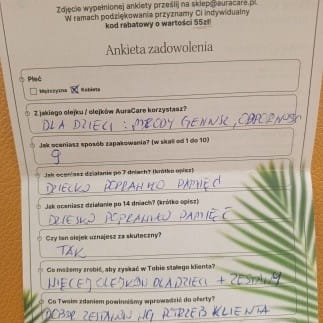 Zdjęcie wypełnionej ankiety prześlij na sklep@auracare.pl.
W ramach podziękowania przyznamy Ci indywidualny
kod rabatowy o wartości 55zł!
Ankieta zadowolenia
Płeć
Mężczyzna Kobieta
Z jakiego olejku / olejków AuraCare korzystasz?
DLA DZIECI : MŁODY GENIUSZ, ODPORNUŚ
Jak oceniasz sposób zapakowania? (w skali od 1 do 10)
9
Jak oceniasz działanie po 7 dniach? (krótko opisz)
DZIECKO POPRAWIŁO PAMIĘĆ
Jak oceniasz działanie po 14 dniach? (krótko opisz)
DZIECKO POPRAWIŁO PAMIĘĆ
Czy ten olejek uznajesz za skuteczny?
TAK
Co możemy zrobić, aby zyskać w Tobie stałego klienta?
WIĘCEJ OLEJKÓW DLA DZIECI + ZESTAWY
Co Twoim zdaniem powinniśmy wprowadzić do oferty?
DOBÓR ZESTAWÓW POTRZEB KLIENTA